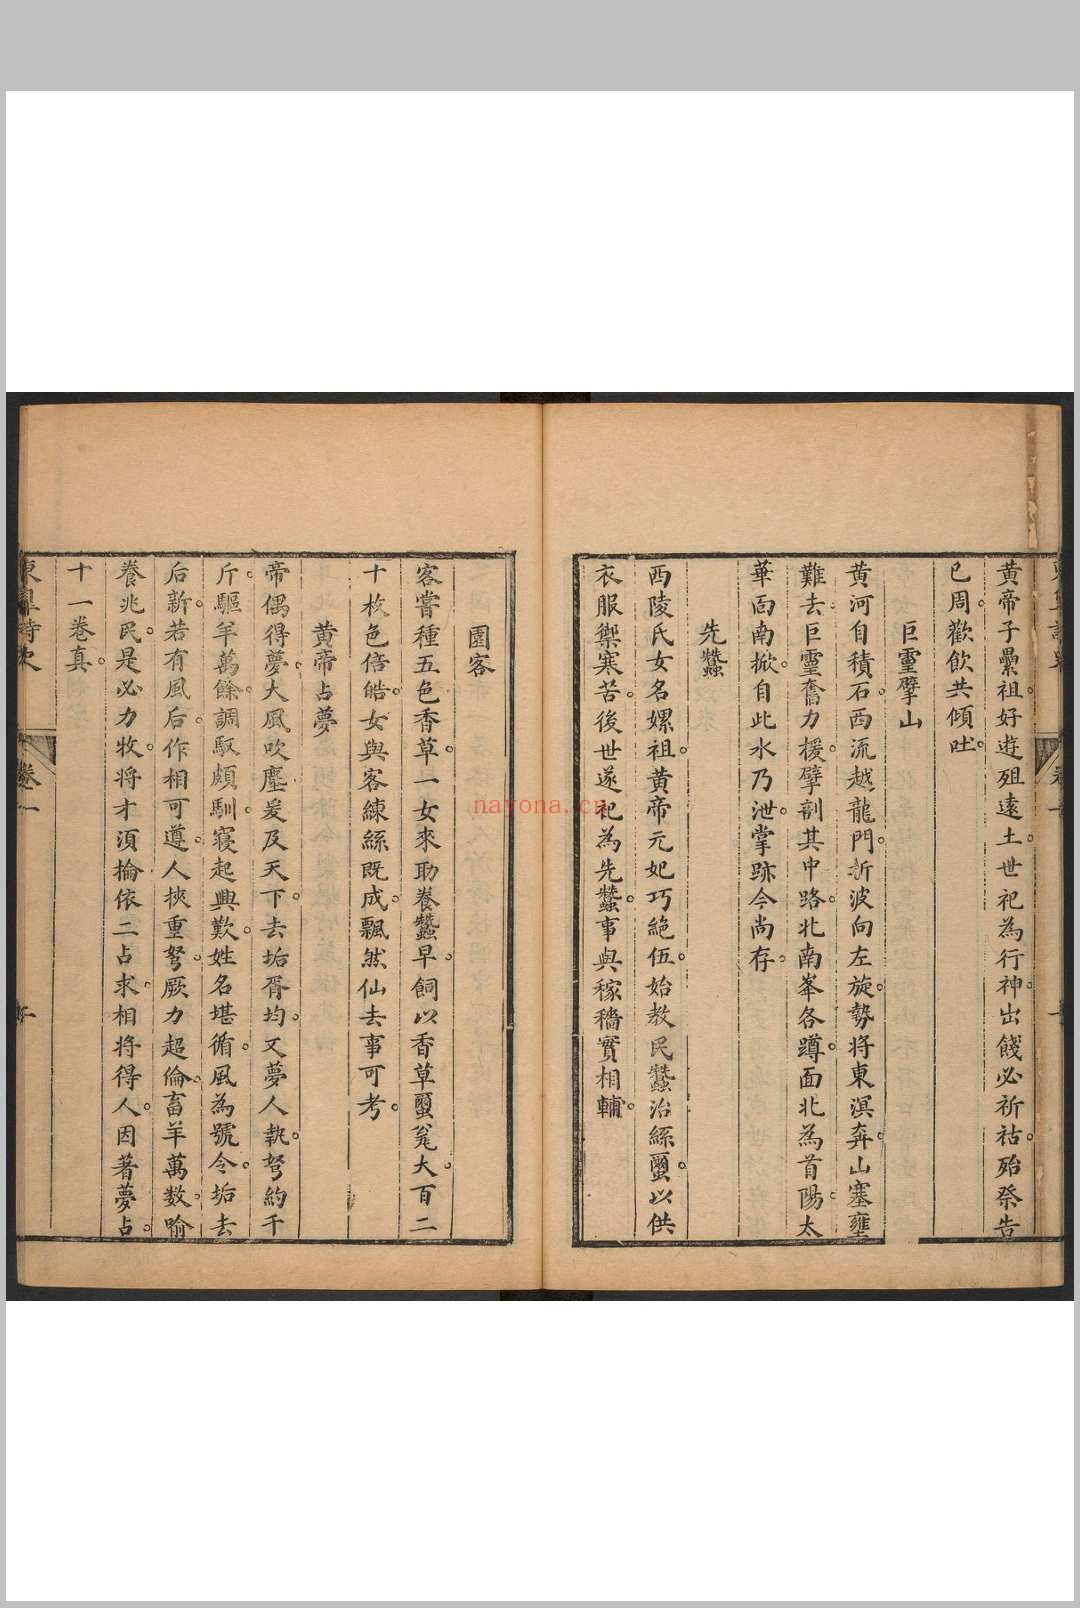 黃帝子纍祖好遊殂遠土世祀為行神出餞必祈祜殆祭告
已周歡飲共傾吐
巨靈擘山
黃河自積石西流越龍門折波向左旋勢將東溟奔山塞壅
難去巨靈奮力援擘剖其中路北南峯各蹲面北為首陽太
華面南掀自此水乃泄掌跡今尚存
先蠶
西陵氏女名嫘祖黃帝元妃巧絕伍始教民蠶治絲蠒以供
衣服禦寒苦後世遂祀為先蠶事與稼穡實相輔
園客
客嘗種五色香草一女來助養蠶早飼以香草蠒瓮大百二
十枚色倍皓女與客練絲既成飄然仙去事可考
黃帝占夢
帝偶得夢大風吹塵爰及天下去垢胥均又夢人執弩約千
斤驅羊萬餘調馭頗馴寢起興歎姓名堪循風為號令垢去
后新若有風后作相可遵人挾重弩厥力超倫畜羊萬数喻
養兆民是必力牧将才須掄依二占求相將得人因著夢占
十一卷真
東皐詩史
卷一
nayona.cn